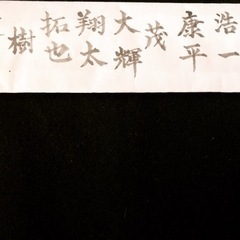 浩一
康平
茂
大輝
翔太
拓也
樹